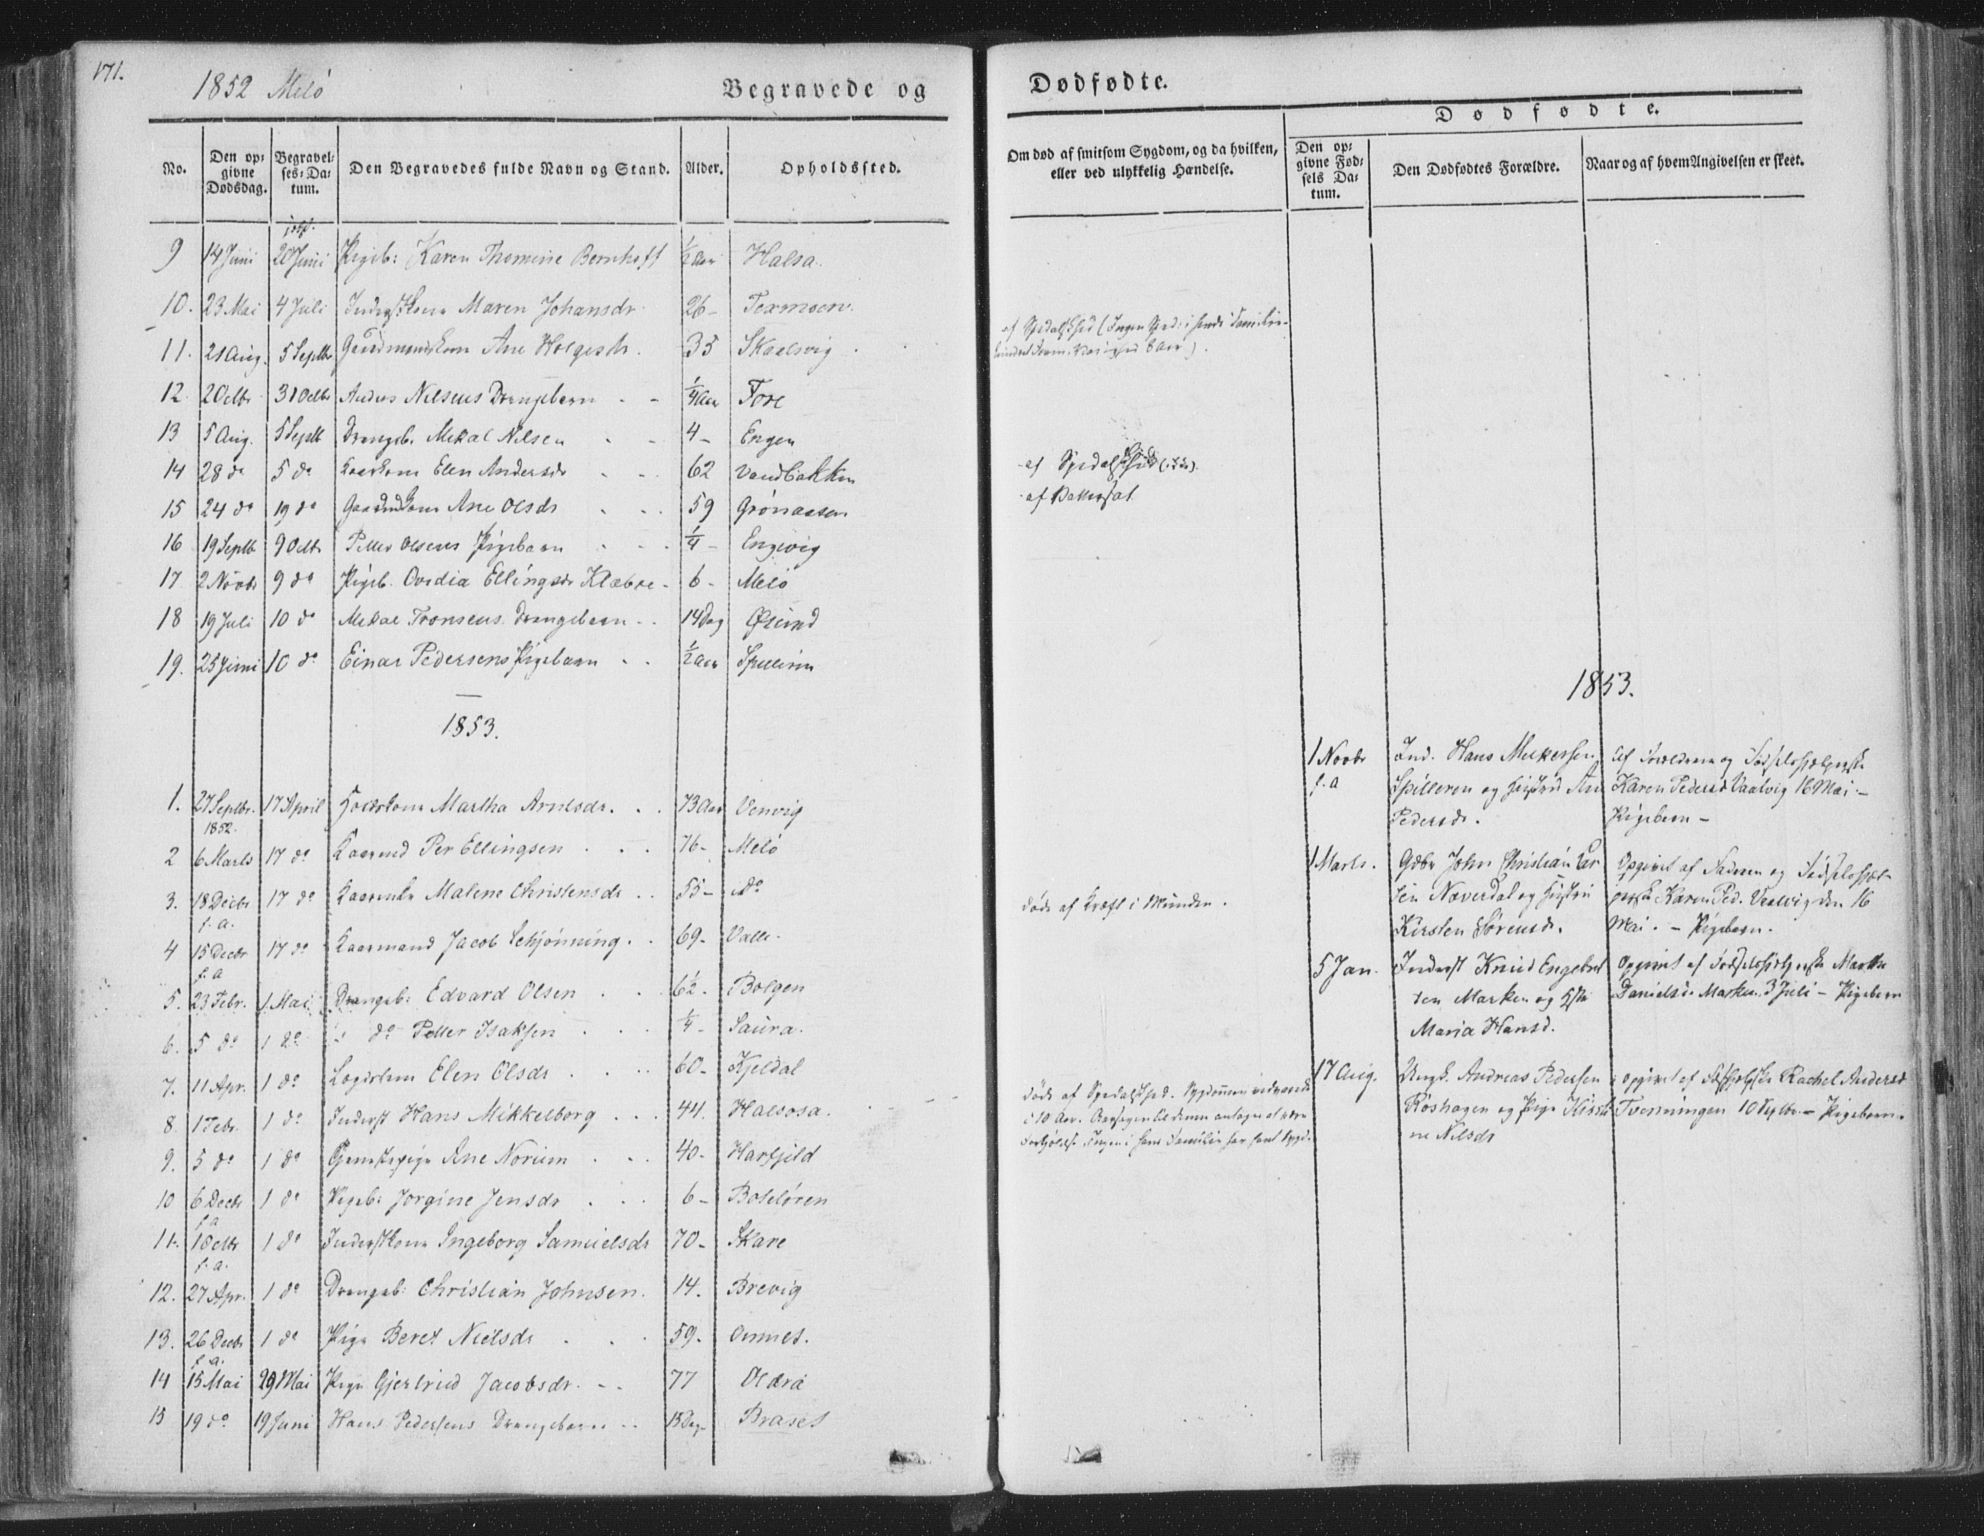 171.
1852 Melö
Begravede og
No. Den opgivne Dødsdag. Begravelses-Datum. Den Begravedes fulde Navn og Stand. Alder. Opholdssted.
9 14 Juni 20 Juni Pigeb: Karen Thomine Bernhoft 1/2 Aar Halsa.
10. 23 Mai 4 Juli Inderstkone Maren Johansdr 26 - Texmoen.
11. 21 Aug. 5 Septbr Gaardmandskone Ane Holgersdr. 35 Skaelsvig
12. 2 Octbr 31 Octbr Anders Nilsens Drengebarn - - 1/4 Aar Fore
13 5 Aug. 5 Septb Drengeb. Mikal Nilsen 4 - Engen
14 28 do 5 do Kaarkone Elen Andersdr 62 Vandbakken
15 24 do 19 do Gaardmdskone Ane Olsdr 59 Grönaasen
16 19 Septb 9 Octb Petter Olsens Pigebarn 1/4 - Engevig
17 2 Novbr 9 do Pigeb. Ovedia Ellingsdr Klæboe - 6 - Melö
18 19 Juli 10 do Mikal Tronsens Drengebarn - - 14 Dag Øsund
19. 25 Juni 10 do Einar Pedersens Pigebarn 1/2 Aar Spilleren
1853.
1. 27 Septbr. 1852. 17 April Kaarkone Martha Arntsdr. 73 Aar Venvig
2 6 Marts 17 do Kaarmd Per Ellingsen 76 - Melö
3. 18 Decbr f. a. 17 do Kaarenke Malene Christensdr 55 - do
4 15 Decbr f. a 17 do Kaarmand Jacob Schjönning 69 - Valle.
5. 23 Febr. 1 Mai Drengeb: Edvard Olsen 6 1/2 - Bolgen
6. 5 do 1 do do Petter Isaksen 1/4 - Saura.
7. 11 Apr. 1 do Lægdslem Elen Olsdr 60 - Kjeldal
8 1 Febr. 1 do Inderst Hans Mikkelborg 44. Halsosa.
9. 5 do 1 do Tjenestepige Ane Norum 40 - Harfjeld
10 6 Decbr f a 1 do Pigeb: Jorgine Jensdr 6 - Bolsløren
11. 1 Octbr f. a. 1 do Inderstkone Ingeborg Samuelsdr 70 - Skare
12. 27 Apr. 1 do Drengeb: Christian Johnsen. 14. Brevig
13. 26 Decbr f. a. 1 do Pige Beret Nielsdr 59 - Ornnes.
14 15 Mai 29 Mai Pige Gjertrud Jacobsdr. - - 77 Oldra
15 19 do 19 Juni Hans Pedersens Drengebarn - - 15 Dage Braset
Dødfødte.
Dødfødte.
Om død af smitsom Sygdom, og da hvilken, eller ved ulykkelig Hændelse. Den opgivne Fødsels Datum. Den Dødfødtes Forældre. Naar og af hvem Angivelsen er skeet.
af Spedalskhed (Ingen Sped: i hendes Familie
af Spedalskhed
af Barnefød
døde af Kræft i Munden.
døde af Spedalskhed. Sygdommen vedvarende
i 10 Aar.
1853.
1 Novbr f. a Ind. Hans Meckersen Af Forældrene og Fødselshjelperske
Spilleren og Hustru Ane Karen Pedersd Vaatvig 16 Mai -
Pedersdr. Pigebarn -
1 Marts. Gdbr John Christian Opgivet af Faderen og Fødselshjel-
sen Noverdal og Hustru perske Karen Ped. Vaatvig den 16
Kirsten Sörensdr. Mai. - Pigebarn.
5 Jan. Inderst Knud Engebret Opgivet af Fødselshjelperske Marthe
sen Marken og Hstr Danielsdr Marken. 3 Juli - Pigebarn
Maria Hansd.
17 Aug. Ungk. Andreas Pedersen opgivet af Rachel Andersd
Röshagen og Pige Kirsti Tverningen 10 Septbr. - Pigebarn.
ne Nilsdr